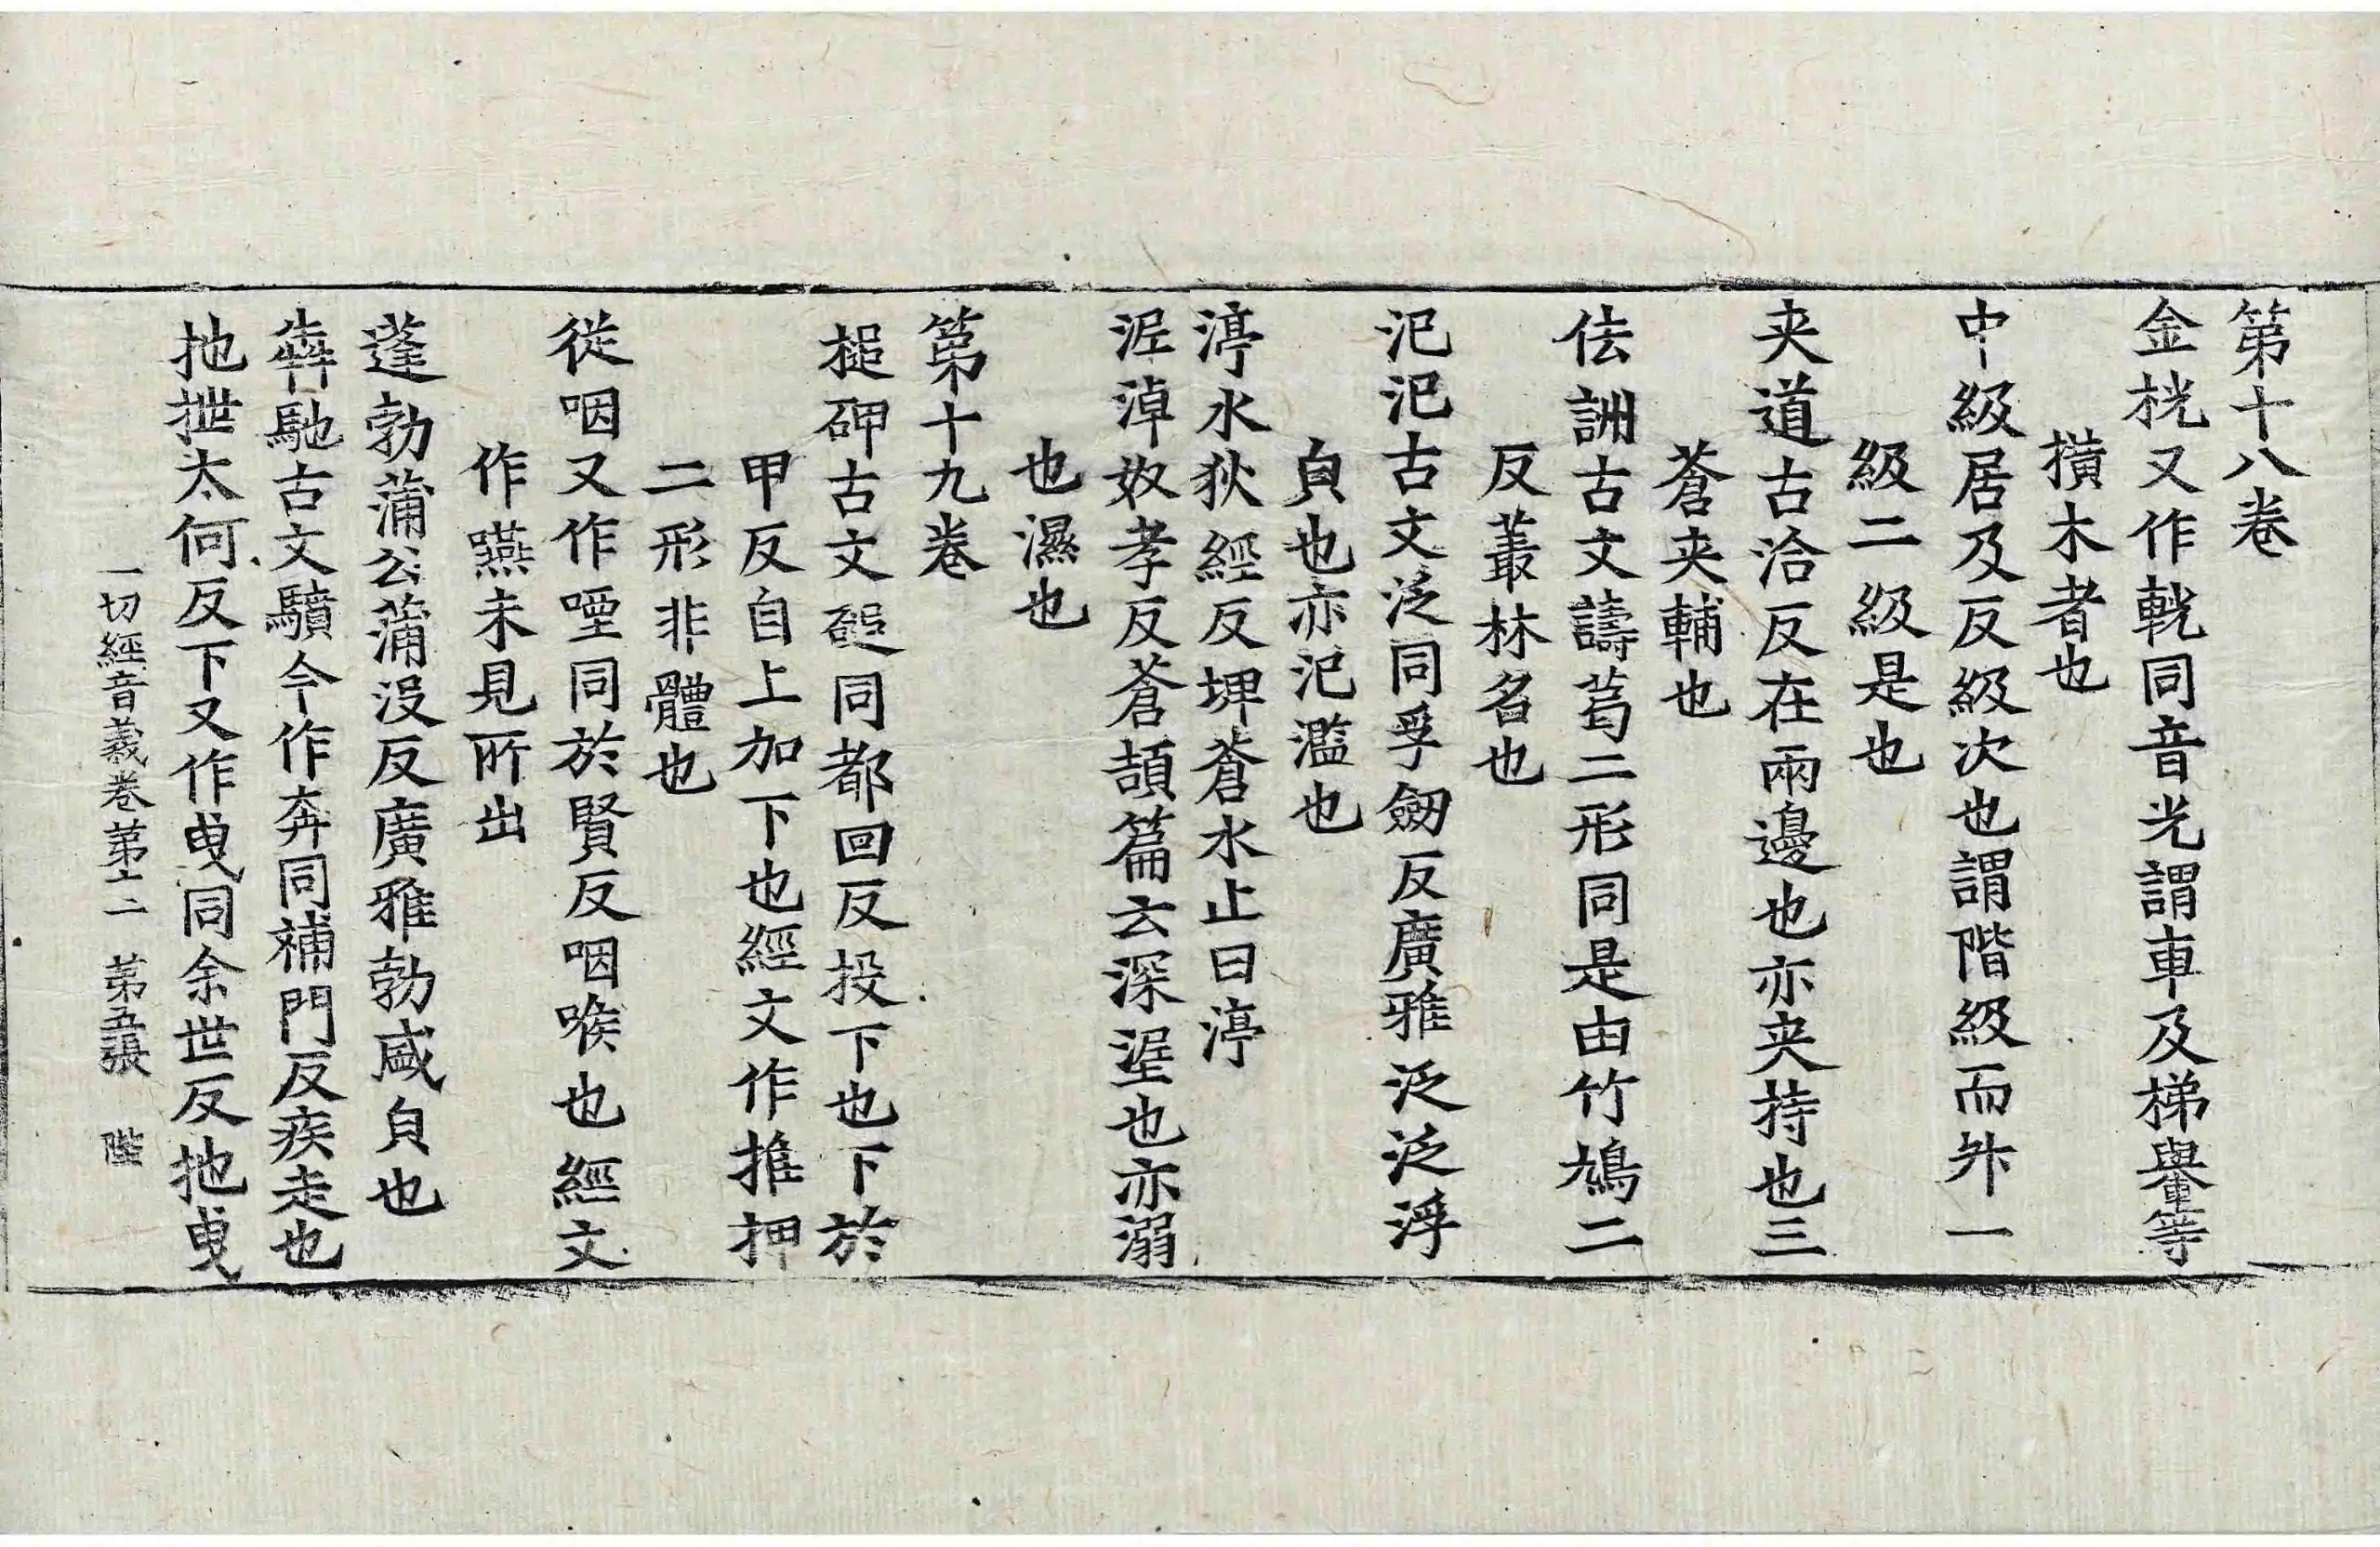 第十八卷
金桄又作軦同音光謂車及梯轝等
撗木者也
中級居及反級次也謂階級而升一
級二級是也
夾道古洽反在兩邊也亦夾持也三
蒼夾輔也
佉詶古文譸䓟二形同是由竹鳩二
反叢林名也
汜汜古文泛同孚劒反廣雅泛泛浮
皃也亦汜濫也
渟水狄經反埤蒼水止曰渟
泥淖奴孝反蒼頡篇云深埿也亦溺
也濕也
第十九卷
搥砷古文磓同都回反投下也下於
甲反自上加下也經文作推押
二形非體也
從咽又作㖶同於賢反咽喉也經文
作嚥未見所出
蓬勃蒲公蒲沒反廣雅勃盛皃也
犇馳古文驞今作奔同補門反疾走也
扡抴太何反下又作曳同余世反扡曳
一切經音義卷第十二 第五張 陛